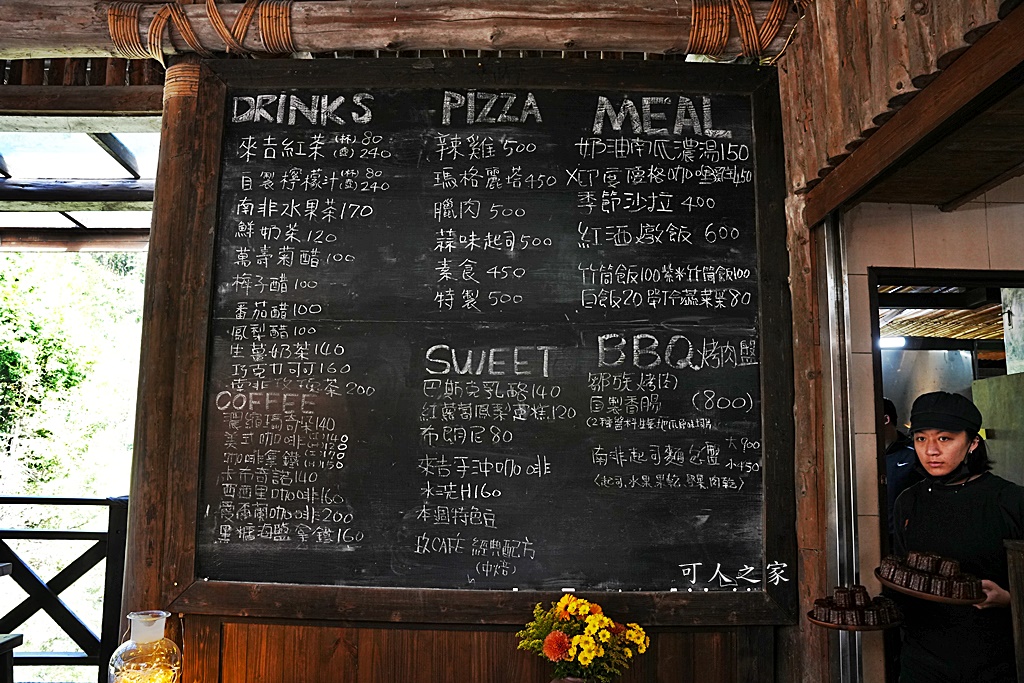 DRINKS
來吉紅茶 (杯)80
(壺)240
自製檸檬汁(杯)80
(壺)240
南非水果茶170
鮮奶茶120
萬壽菊醋100
梅子醋100
番茄醋100
鳳梨醋100
生薑奶茶140
巧克力可可160
南非玫瑰茶200
COFFEE
濃縮瑪奇朵140
美式咖啡
咖啡拿鐵
卡布奇諾140
西西里咖啡160
愛爾蘭咖啡200
黑糖海鹽拿鐵160
PIZZA
辣雞500
瑪格麗塔450
臘肉500
蒜味起司500
素食450
特製500
SWEET
巴斯克乳酪140
紅蘿蔔鳳梨蛋糕120
布朗尼80
來吉手沖咖啡
冰洗H160
本週特色豆
玖CAFE 經典配方
(中焙)
MEAL
奶油南瓜濃湯150
X印度優格咖哩雞450
季節沙拉400
紅酒燉飯600
竹筒飯100紫米竹筒飯100
白飯20單吃蔬菜80
BBQ烤肉盤
鄒族烤肉
自製香腸 (800)
南非起司麵包盤 大900
小450
(起司、水果、果乾、堅果、肉乾)
可人之家